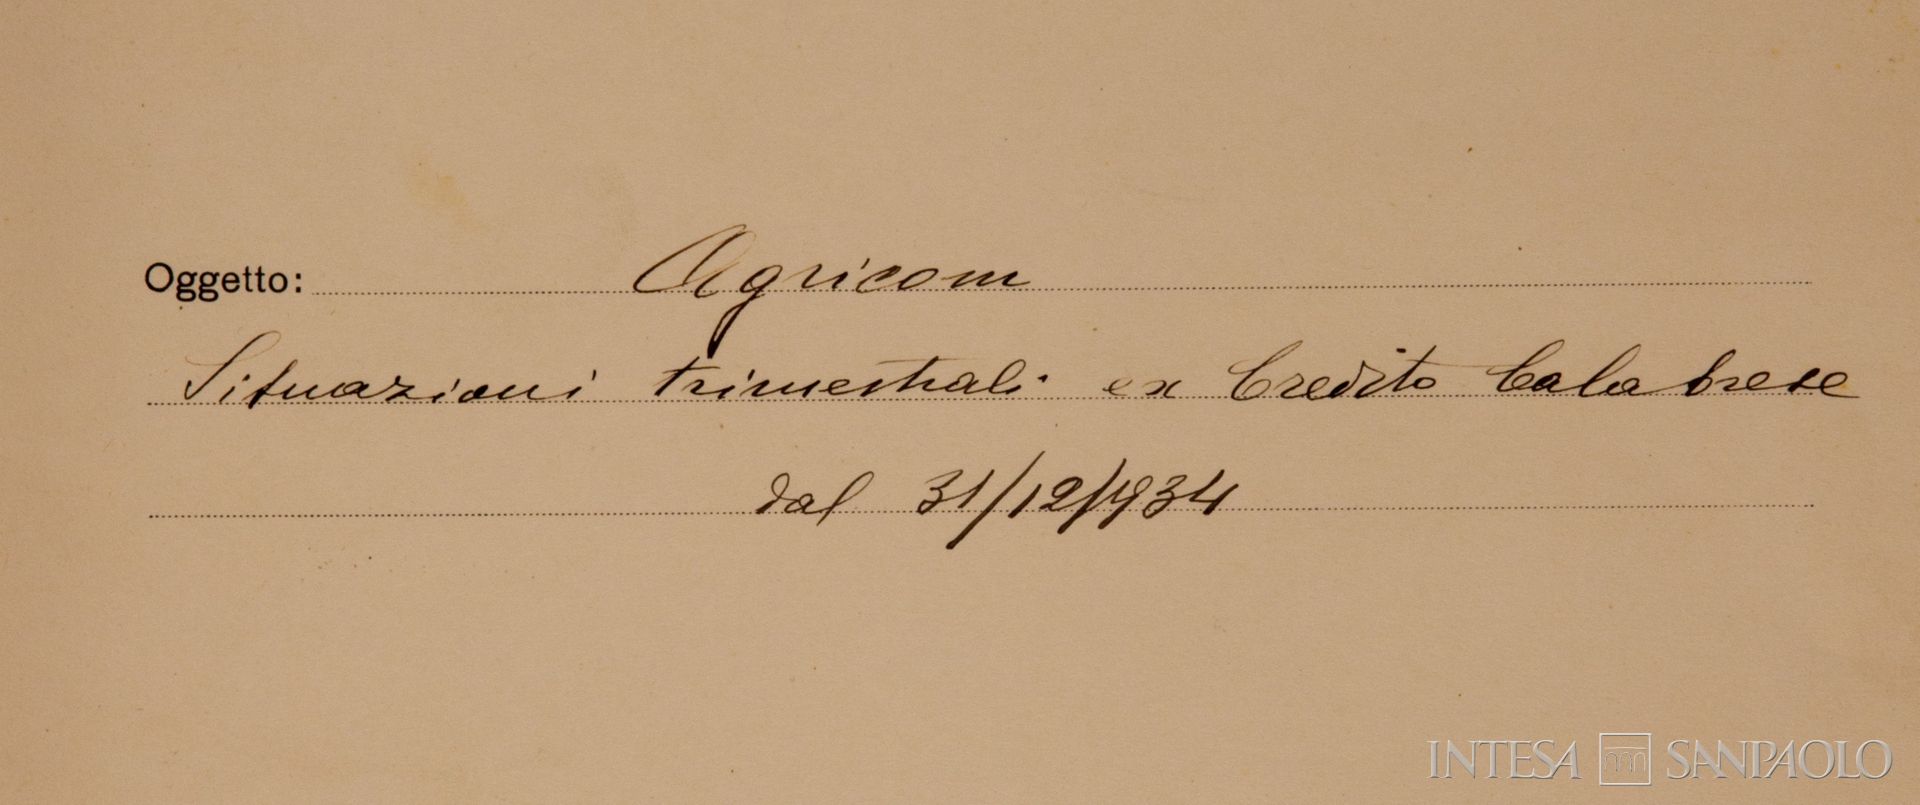 Oggetto: Agricom
Situazioni trimestrali ex Credito Calabrese
dal 31/12/934
INTESA SANPAOLO